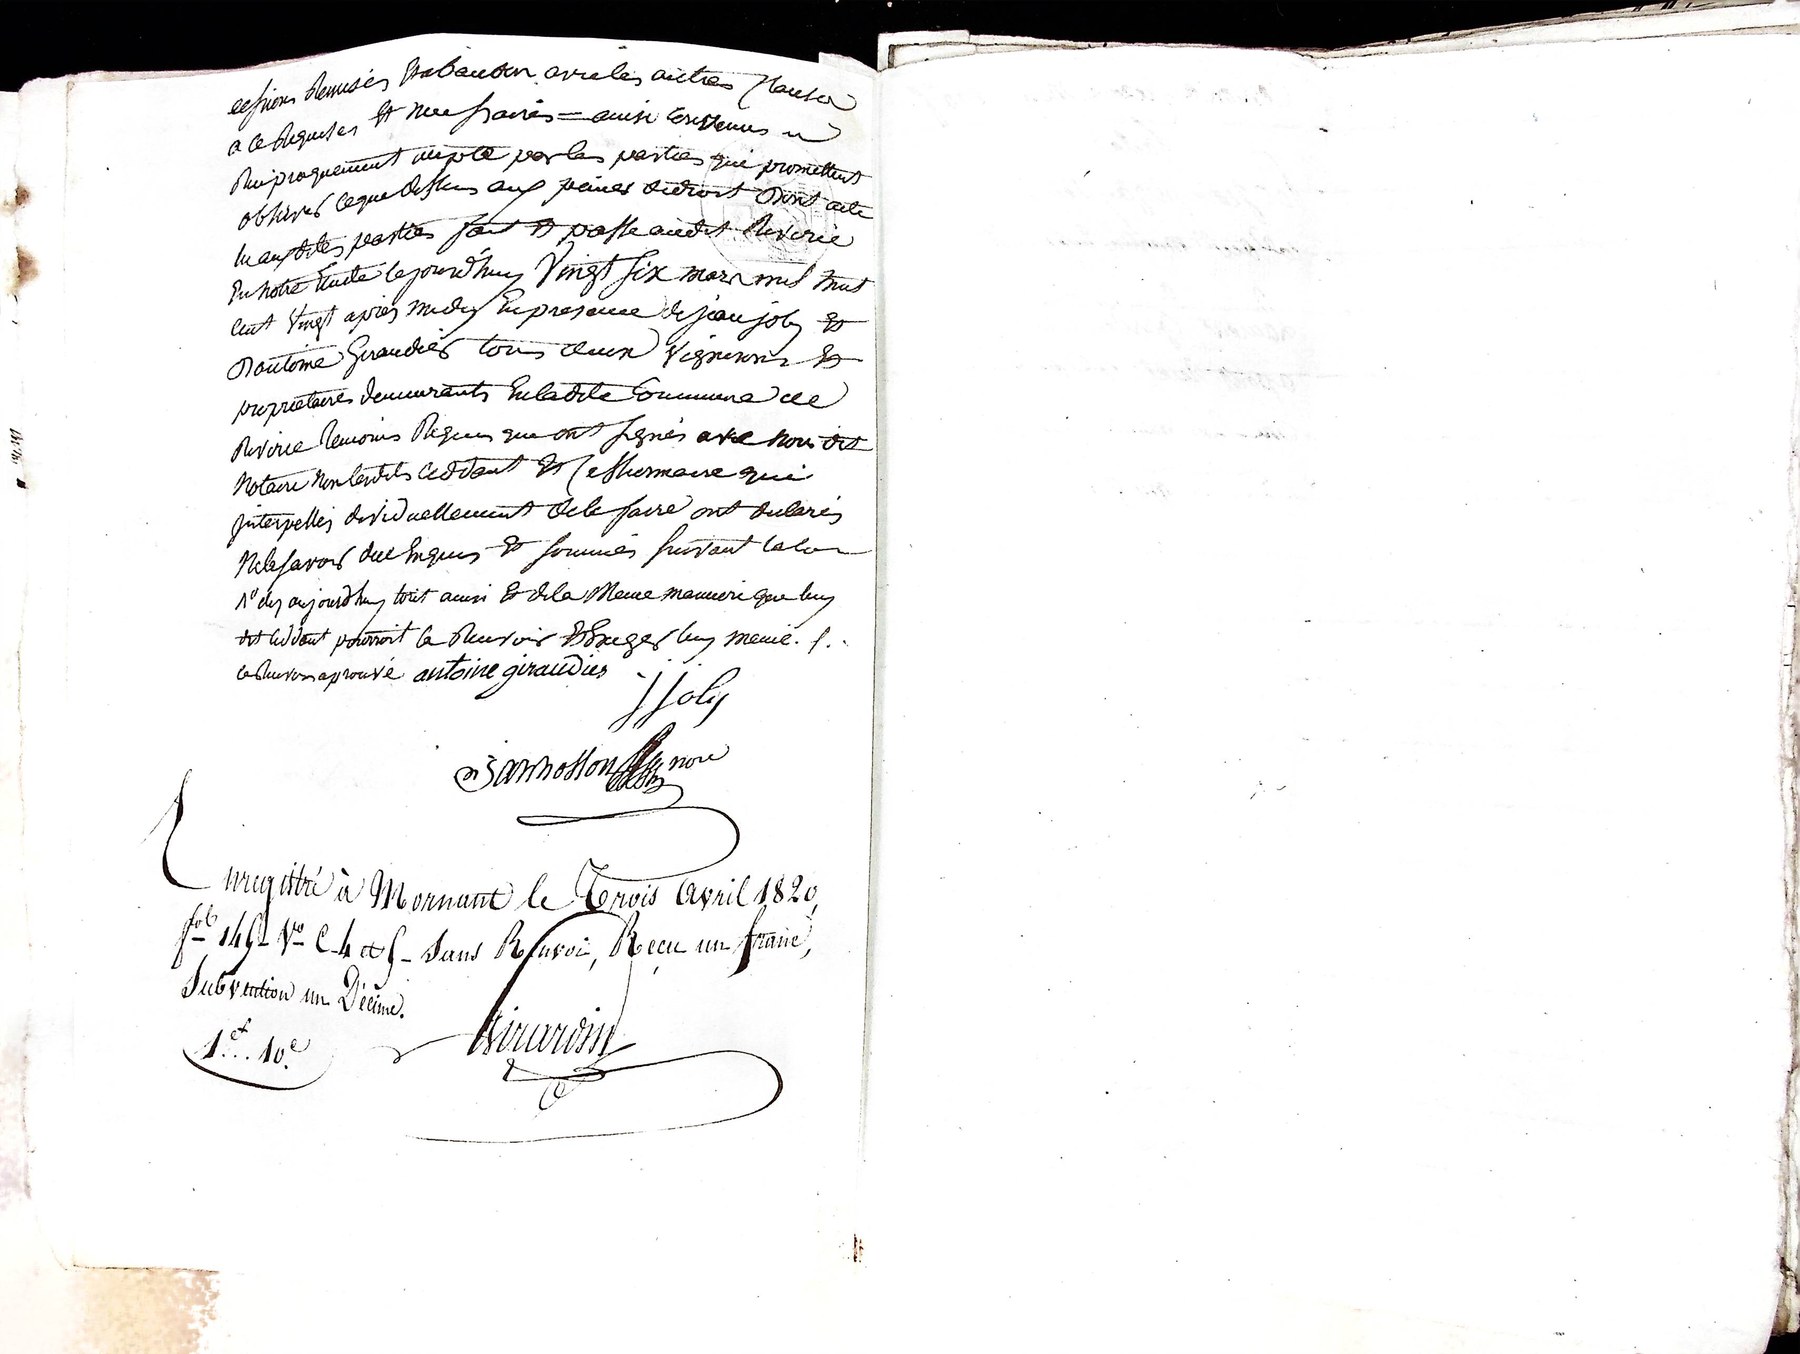 cessions Remises et abandon avec les autres clauses
a ce Requises et necessaires = ainsi convenus et
Reciproquement accepté par les parties qui promettent
observer ce que dessus aux peines de droit Dont acte
lu auxdites parties fait et passé audit Riverie
En notre Etude cejourd'huy Vingt six mars mil huit
cent Vingt apres midy En presence de jean joly et
D'antoine Giraudier tous deux Vignerons et
proprietaires demeurants En ladite Commune de
Riverie temoins Requis que ont signés avec nous dit
Notaire Non lesdits ceddant et cessionnaire qui
interpellés dividuellement de le faire ont declarés
Ne le savoir de ce Enquis et sommés suivant la loy
des aujourd'huy tout ainsi et de la Meme maniere que luy
dit ceddant pourroit le Recevoir et Exiger luy meme.
ce Renvoy aprouvé antoine giraudier
j joly
Jannosson nore
Enregistré à Mornant le Trois avril 1820,
fol 145 Vo C. 4 et 5 - sans Renvoi, Reçu un franc,
Subvention un Décime.
1f.. 10c. Girardin